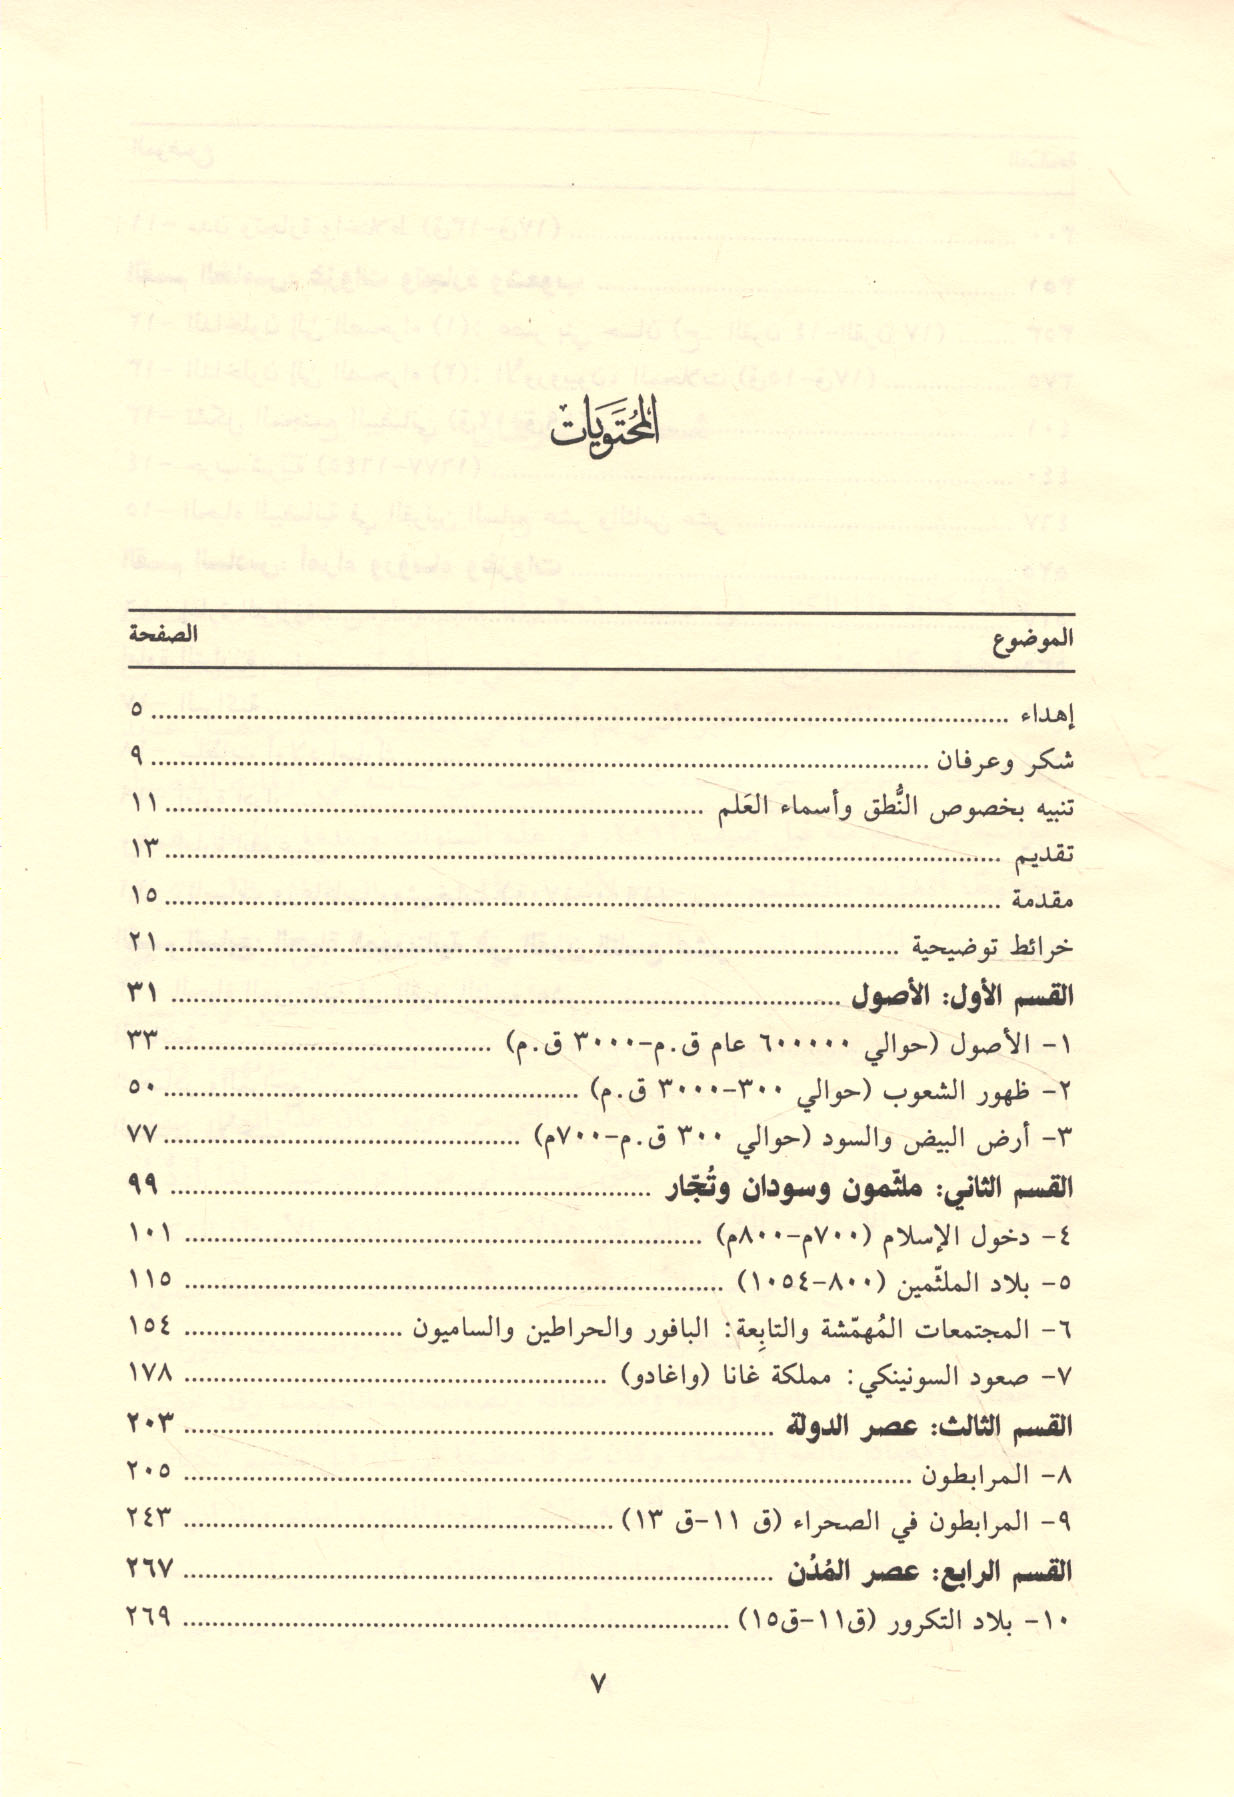 المُحتَوَيَات
الموضوع الصفحة
إهداء ........ ٥
شكر وعرفان ........ ٩
تنبيه بخصوص النُّطق وأسماء العَلم ........ ١١
تقديم ........ ١٣
مقدمة ........ ١٥
خرائط توضيحية ........ ٢١
القسم الأول: الأصول ........ ٣١
١- الأصول (حوالي ٦٠٠٠٠٠ عام ق.م-٣٠٠٠ ق.م) ........ ٣٣
٢- ظهور الشعوب (حوالي ٣٠٠-٣٠٠٠ ق.م) ........ ٥٠
٣- أرض البيض والسود (حوالي ٣٠٠ ق.م-٧٠٠م) ........ ٧٧
القسم الثاني: ملثّمون وسودان وتُجّار ........ ٩٩
٤- دخول الإسلام (٧٠٠م-٨٠٠م) ........ ١٠١
٥- بلاد الملثّمين (٨٠٠-١٠٥٤) ........ ١١٥
٦- المجتمعات المُهمّشة والتابِعة: البافور والحراطين والساميون ........ ١٥٤
٧- صعود السونينكي: مملكة غانا (واغادو) ........ ١٧٨
القسم الثالث: عصر الدولة ........ ٢٠٣
٨- المرابطون ........ ٢٠٥
٩- المرابطون في الصحراء (ق ١١-ق ١٣) ........ ٢٤٣
القسم الرابع: عصر المُدُن ........ ٢٦٧
١٠- بلاد التكرور (ق١١-ق١٥) ........ ٢٦٩
٧